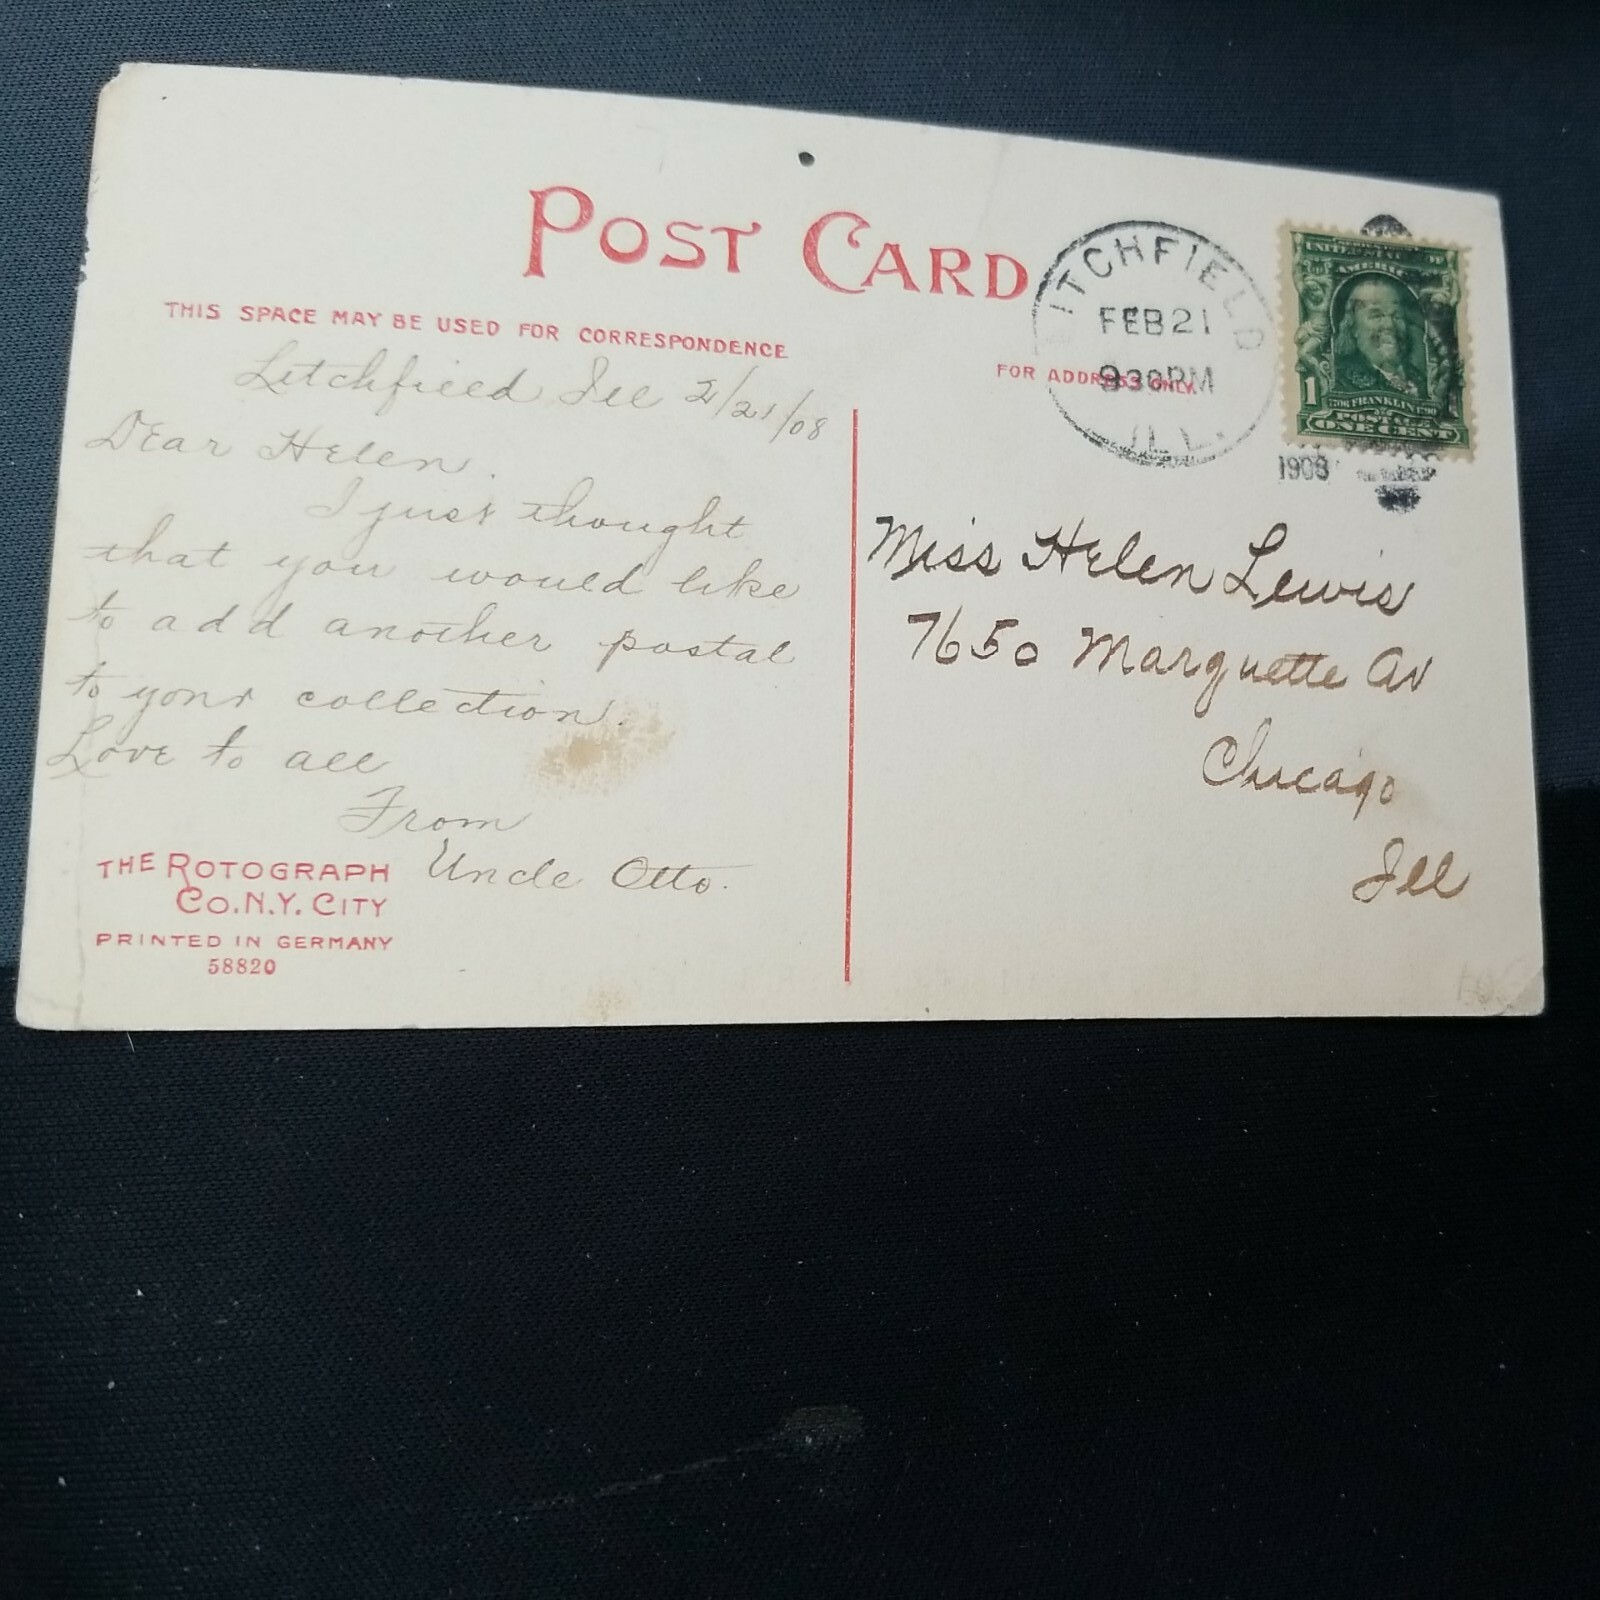 POST CARD
THIS SPACE MAY BE USED FOR CORRESPONDENCE
Litchfield Ill 2/21/08
Dear Helen.
I just thought
that you would like
to add another postal
to your collection.
Love to all
From
Uncle Otto.
THE ROTOGRAPH
CO. N.Y. CITY
PRINTED IN GERMANY
58820
FOR ADDRESS ONLY
LITCHFIELD
FEB 21
930PM
ILL.
1908
UNITED STATES OF
AMERICA
1
1706 FRANKLIN 1790
POSTAGE
ONE CENT
Miss Helen Lewis
7650 Marquette Av
Chicago
Ill